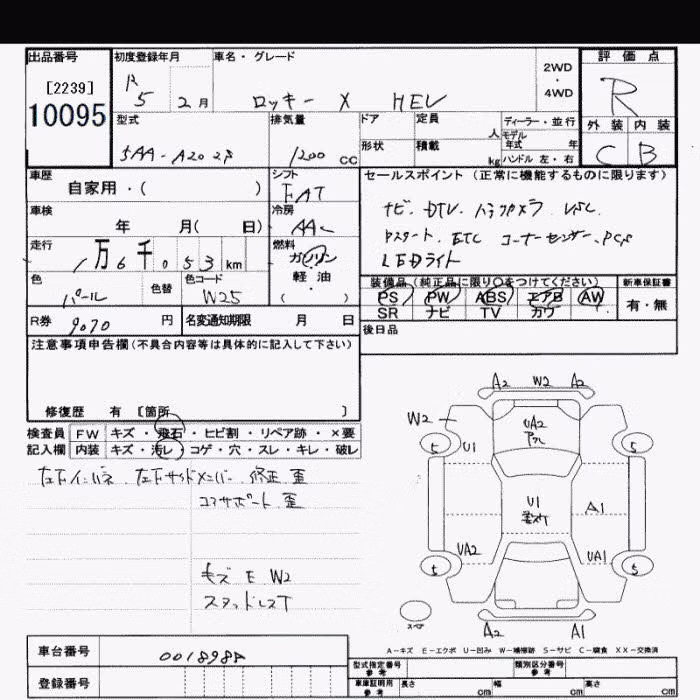 出品番号
[2239]
10095
初度登録年月
R 5 2月
車名・グレード
ロッキー X HEV
2WD
・
4WD
評価点
R
外装 内装
C B
型式
5AA-A202S
排気量
1200 cc
ドア
定員
人
ディーラー・並行
モデル
年式 年
形状
積載
kg
ハンドル 左・右
車歴
自家用・( )
シフト
FAT
セールスポイント (正常に機能するものに限ります)
ナビ. DTV. バックカメラ VSC.
Pスタート. ETC コーナーセンサー. PCS
LEDライト
車検
年 月( 日)
冷房
AAC
走行
1万6千053km
燃料
ガソリン
軽・油
( )
色
パール
色替
色コード
W25
装備品 (純正品に限り○をつけてください)
PS PW ABS エアB AW
SR ナビ TV カワ
新車保証書
有・無
R券 9070 円
名変通知期限 月 日
後日品
注意事項申告欄 (不具合内容等は具体的に記入して下さい)
修復歴 有 [箇所 ]
検査員 FW キズ・飛石・ヒビ割・リペア跡・×要
記入欄 内装 キズ・汚レ・コゲ・穴・スレ・キレ・破レ
左フインパネ. 左フサイドメンバー 修正 歪
コアサポート 歪
キズ E W2
スタッドレスT
A2 W2 A2
W2
UA2
アル
5 U1 5
U1
A1
UA2
UA1
5 5
スペア
A2 A1
A-キズ E-エクボ U-凹み W-補修跡 S-サビ C-腐食 XX-交換済
車台番号
登録番号
型式指定番号
参考
類別区分番号
参考
車庫証明用
参考
長さ cm 幅 cm 高さ cm